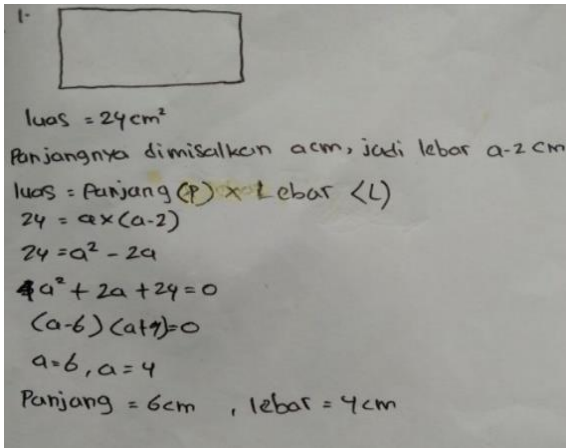 1.
luas = 24 cm²
Panjangnya dimisalkan a cm, jadi lebar a-2 cm
luas = Panjang (P) x Lebar (L)
24 = a x (a-2)
24 = a² - 2a
a² + 2a + 24 = 0
(a-6) (a+4)=0
a=6, a=4
Panjang = 6cm , lebar = 4cm